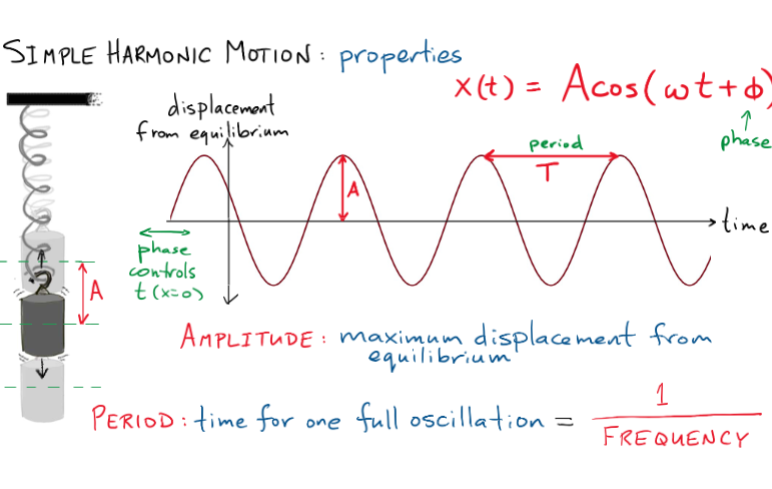 SIMPLE HARMONIC MOTION: properties
x(t) = Acos(ωt+ϕ)
phase
displacement
from equilibrium
period
T
A
time
phase
controls
t(x=0)
A
AMPLITUDE: maximum displacement from
equilibrium
PERIOD: time for one full oscillation = 1
FREQUENCY